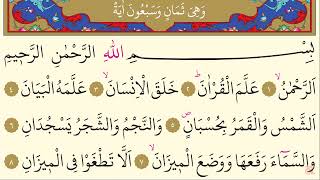 وَهِيَ ثَمَانٍ وَسَبْعُونَ اٰيَةً
بِسْمِ اللّٰهِ الرَّحْمٰنِ الرَّحِيمِ
اَلرَّحْمٰنُۙ ﴿١﴾ عَلَّمَ الْقُرْاٰنَۜ ﴿٢﴾ خَلَقَ الْاِنْسَانَۙ ﴿٣﴾ عَلَّمَهُ الْبَيَانَ ﴿٤﴾
اَلشَّمْسُ وَالْقَمَرُ بِحُسْبَانٍۖ ﴿٥﴾ وَالنَّجْمُ وَالشَّجَرُ يَسْجُدَانِ ﴿٦﴾
وَالسَّمَٓاءَ رَفَعَهَا وَوَضَعَ الْمِيزَانَۙ ﴿٧﴾ اَلَّا تَطْغَوْا فِي الْمِيزَانِ ﴿٨﴾